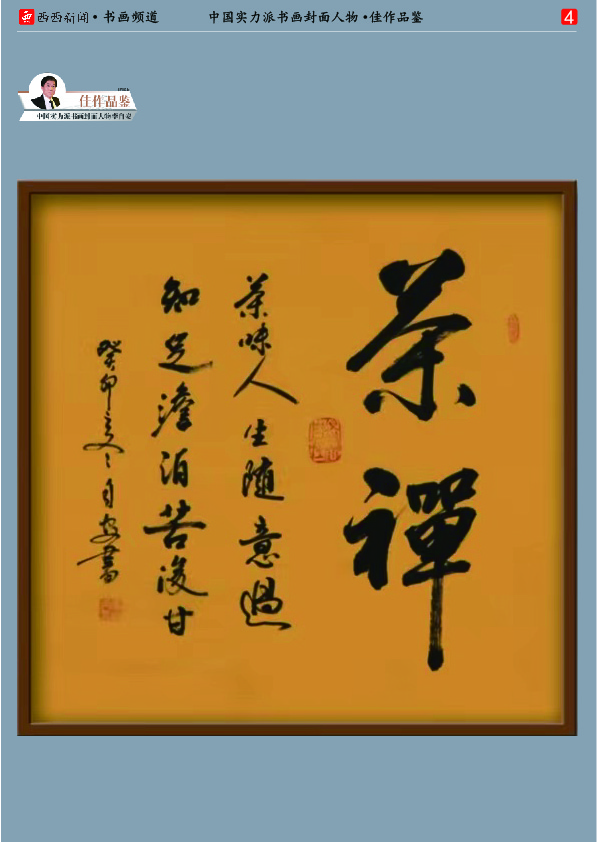 西 西西新闻·书画频道 中国实力派书画封面人物·佳作品鉴 4
佳作品鉴
中国实力派书画封面人物李自安
茶禪
茶味人生随意過
知足澹泊苦後甘
癸卯之冬自安書